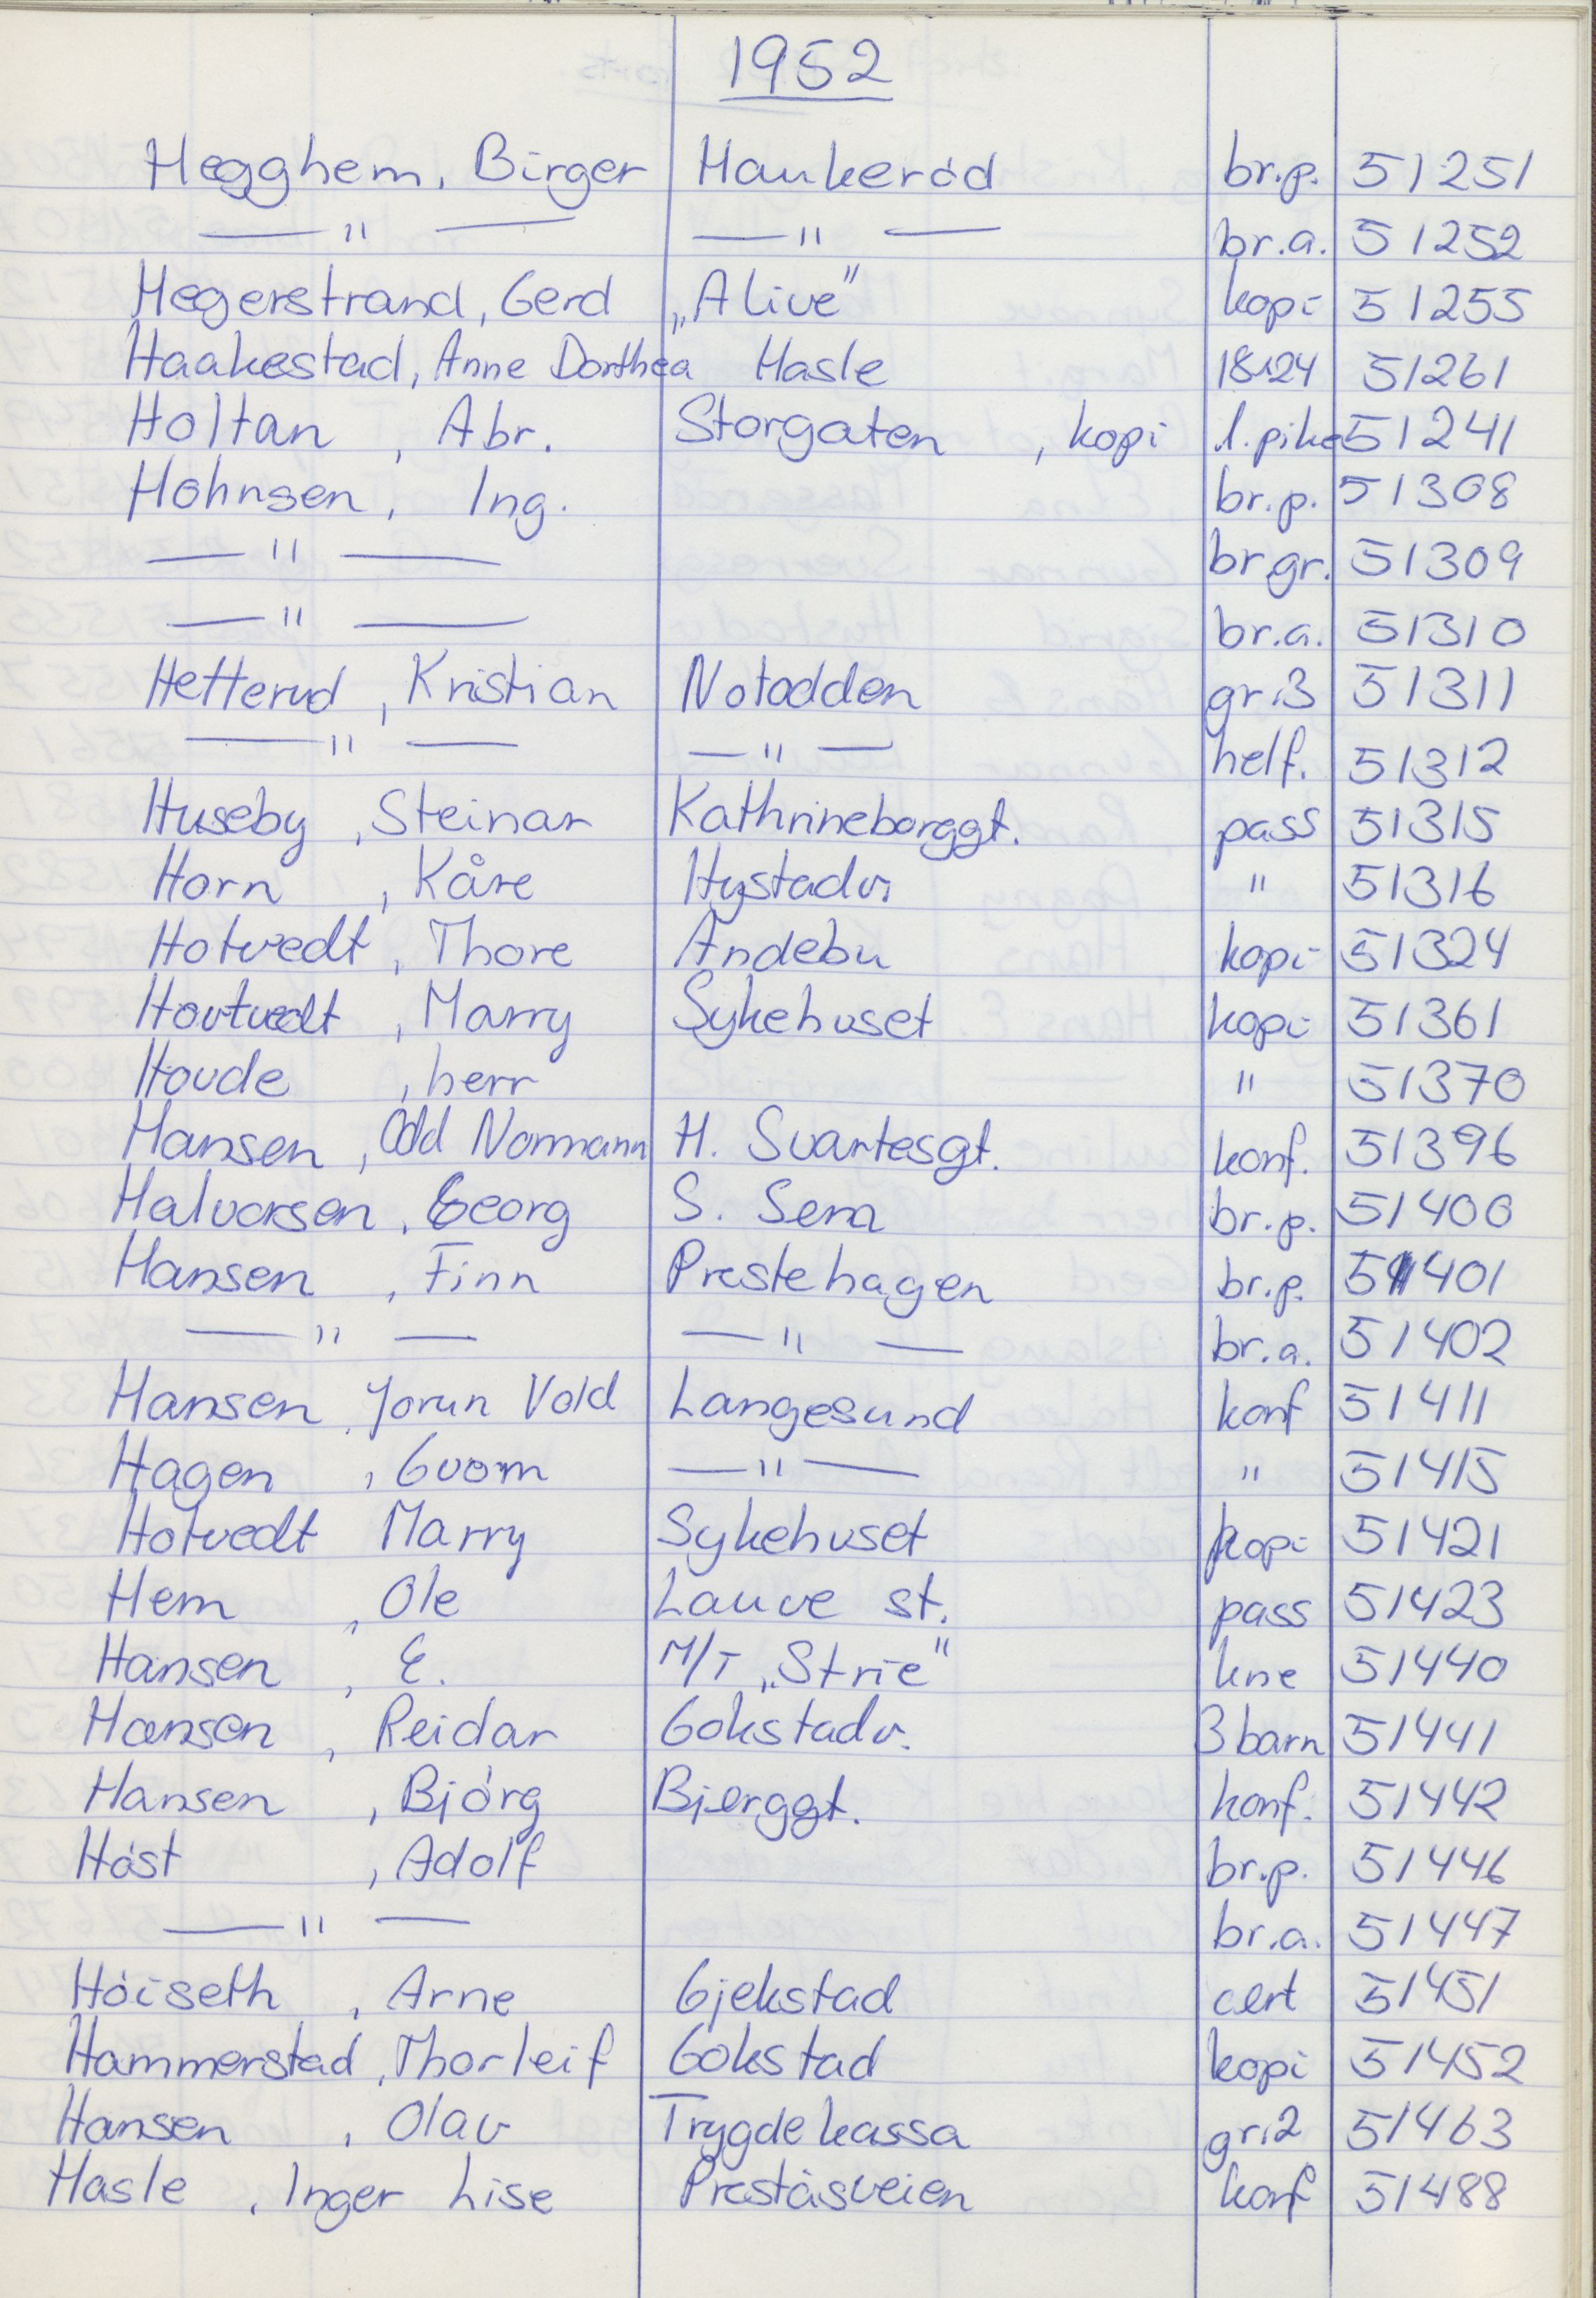 1952
Hegghem, Birger Haukeröd br.p. 51251
— " — — " — br.a. 51252
Hegerstrand, Gerd „Alive" kopi 51255
Haakestad, Anne Dorthea Hasle 18x24 51261
Holtan, Abr. Storgaten, kopi l.pike 51241
Hohnsen, Ing. br.p. 51308
— " — br.gr. 51309
— " — br.a. 51310
Hetterud, Kristian Notodden gr.3 51311
— " — — " — helf. 51312
Huseby, Steinar Kathrineborggt. pass 51315
Horn, Kåre Hystadv. " 51316
Hotvedt, Thore Andebu kopi 51324
Hovtvedt, Marry Sykehuset kopi 51361
Hovde, herr " 51370
Hansen, Odd Normann H. Svartesgt. konf. 51396
Halvorsen, Georg S. Sem br.p. 51400
Hansen, Finn Prestehagen br.p. 51401
— " — — " — br.a. 51402
Hansen, Jorun Vold Langesund konf 51411
Hagen, Guom — " — " 51415
Hotvedt Marry Sykehuset kopi 51421
Hem, Ole Lauve st. pass 51423
Hansen, E. M/T „Strie" kne 51440
Hansen, Reidar Gokstadv. 3 barn 51441
Hansen, Bjórg Bjerggt. konf. 51442
Hóst, Adolf br.p. 51446
— " — br.a. 51447
Hóiseth, Arne Gjekstad cert 51451
Hammerstad, Thorleif Gokstad kopi 51452
Hansen, Olav Trygdekassa gr.2 51463
Hasle, Inger Lise Preståsveien konf 51488